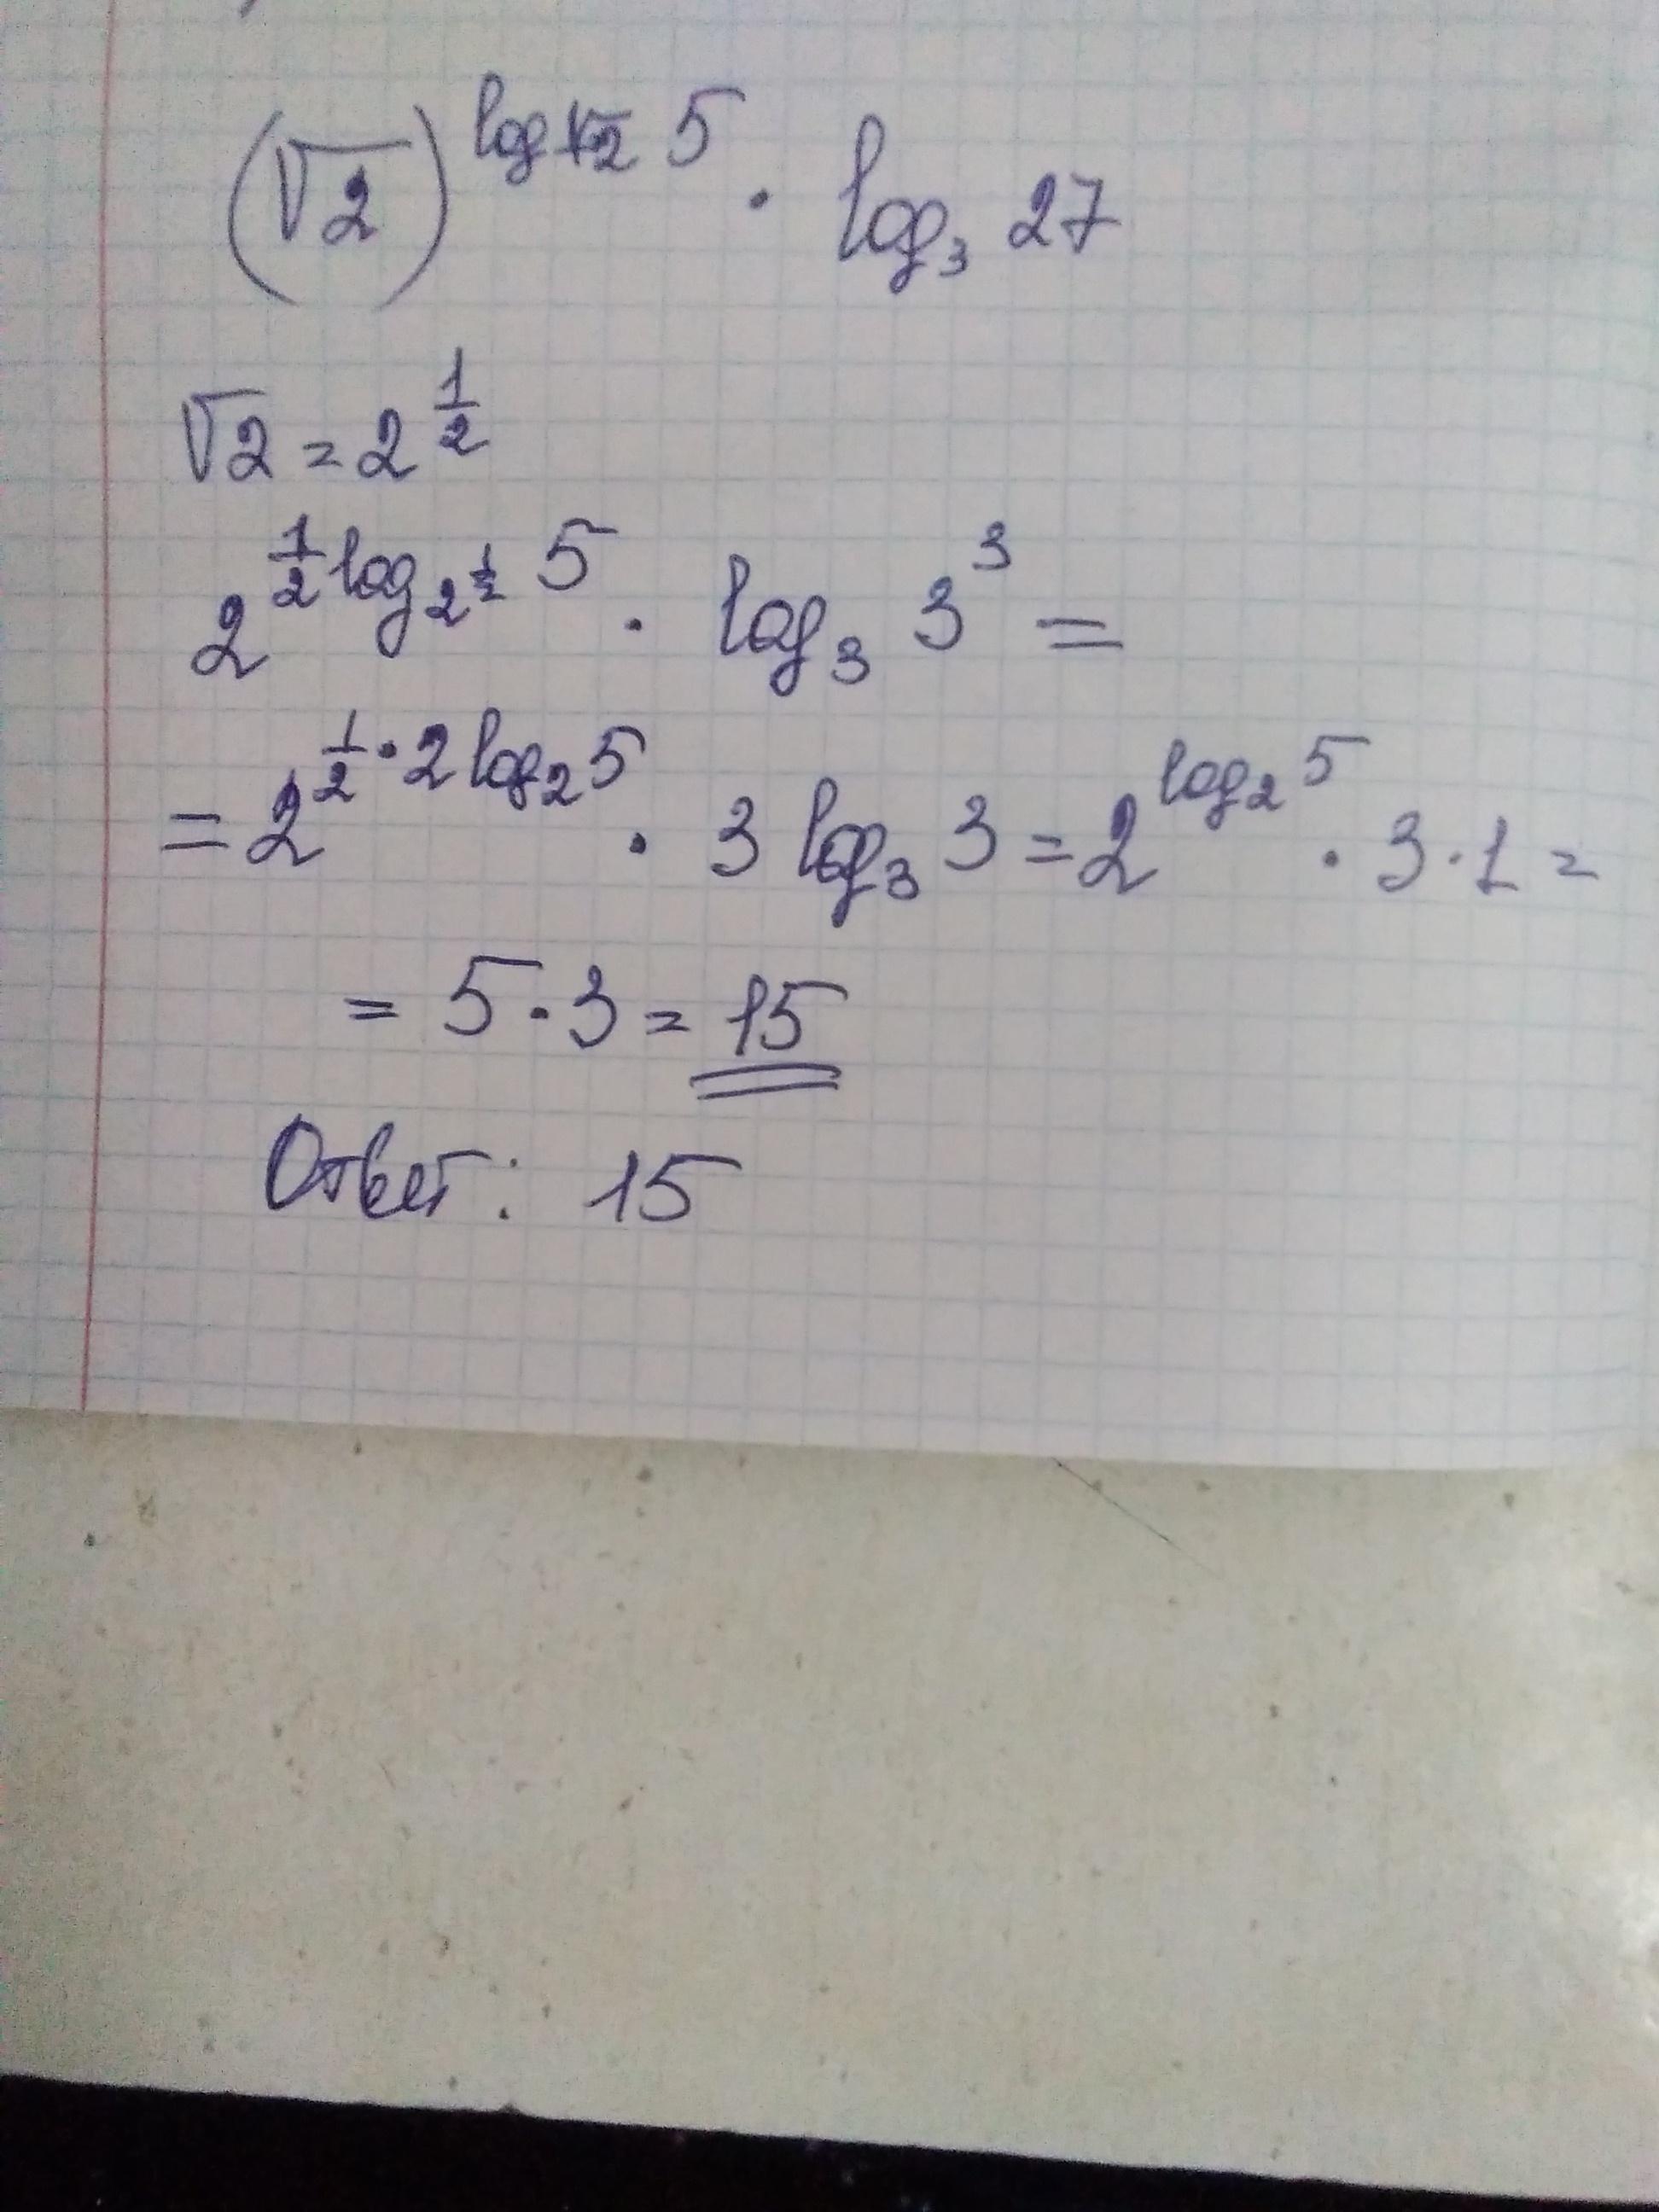 (√2)^(log_√2 5) · log₃ 27
√2 = 2^(1/2)
2^(1/2 log_(2^(1/2)) 5) · log₃ 3³ =
= 2^(1/2 · 2 log₂ 5) · 3 log₃ 3 = 2^(log₂ 5) · 3 · 1 =
= 5 · 3 = 15
Ответ: 15